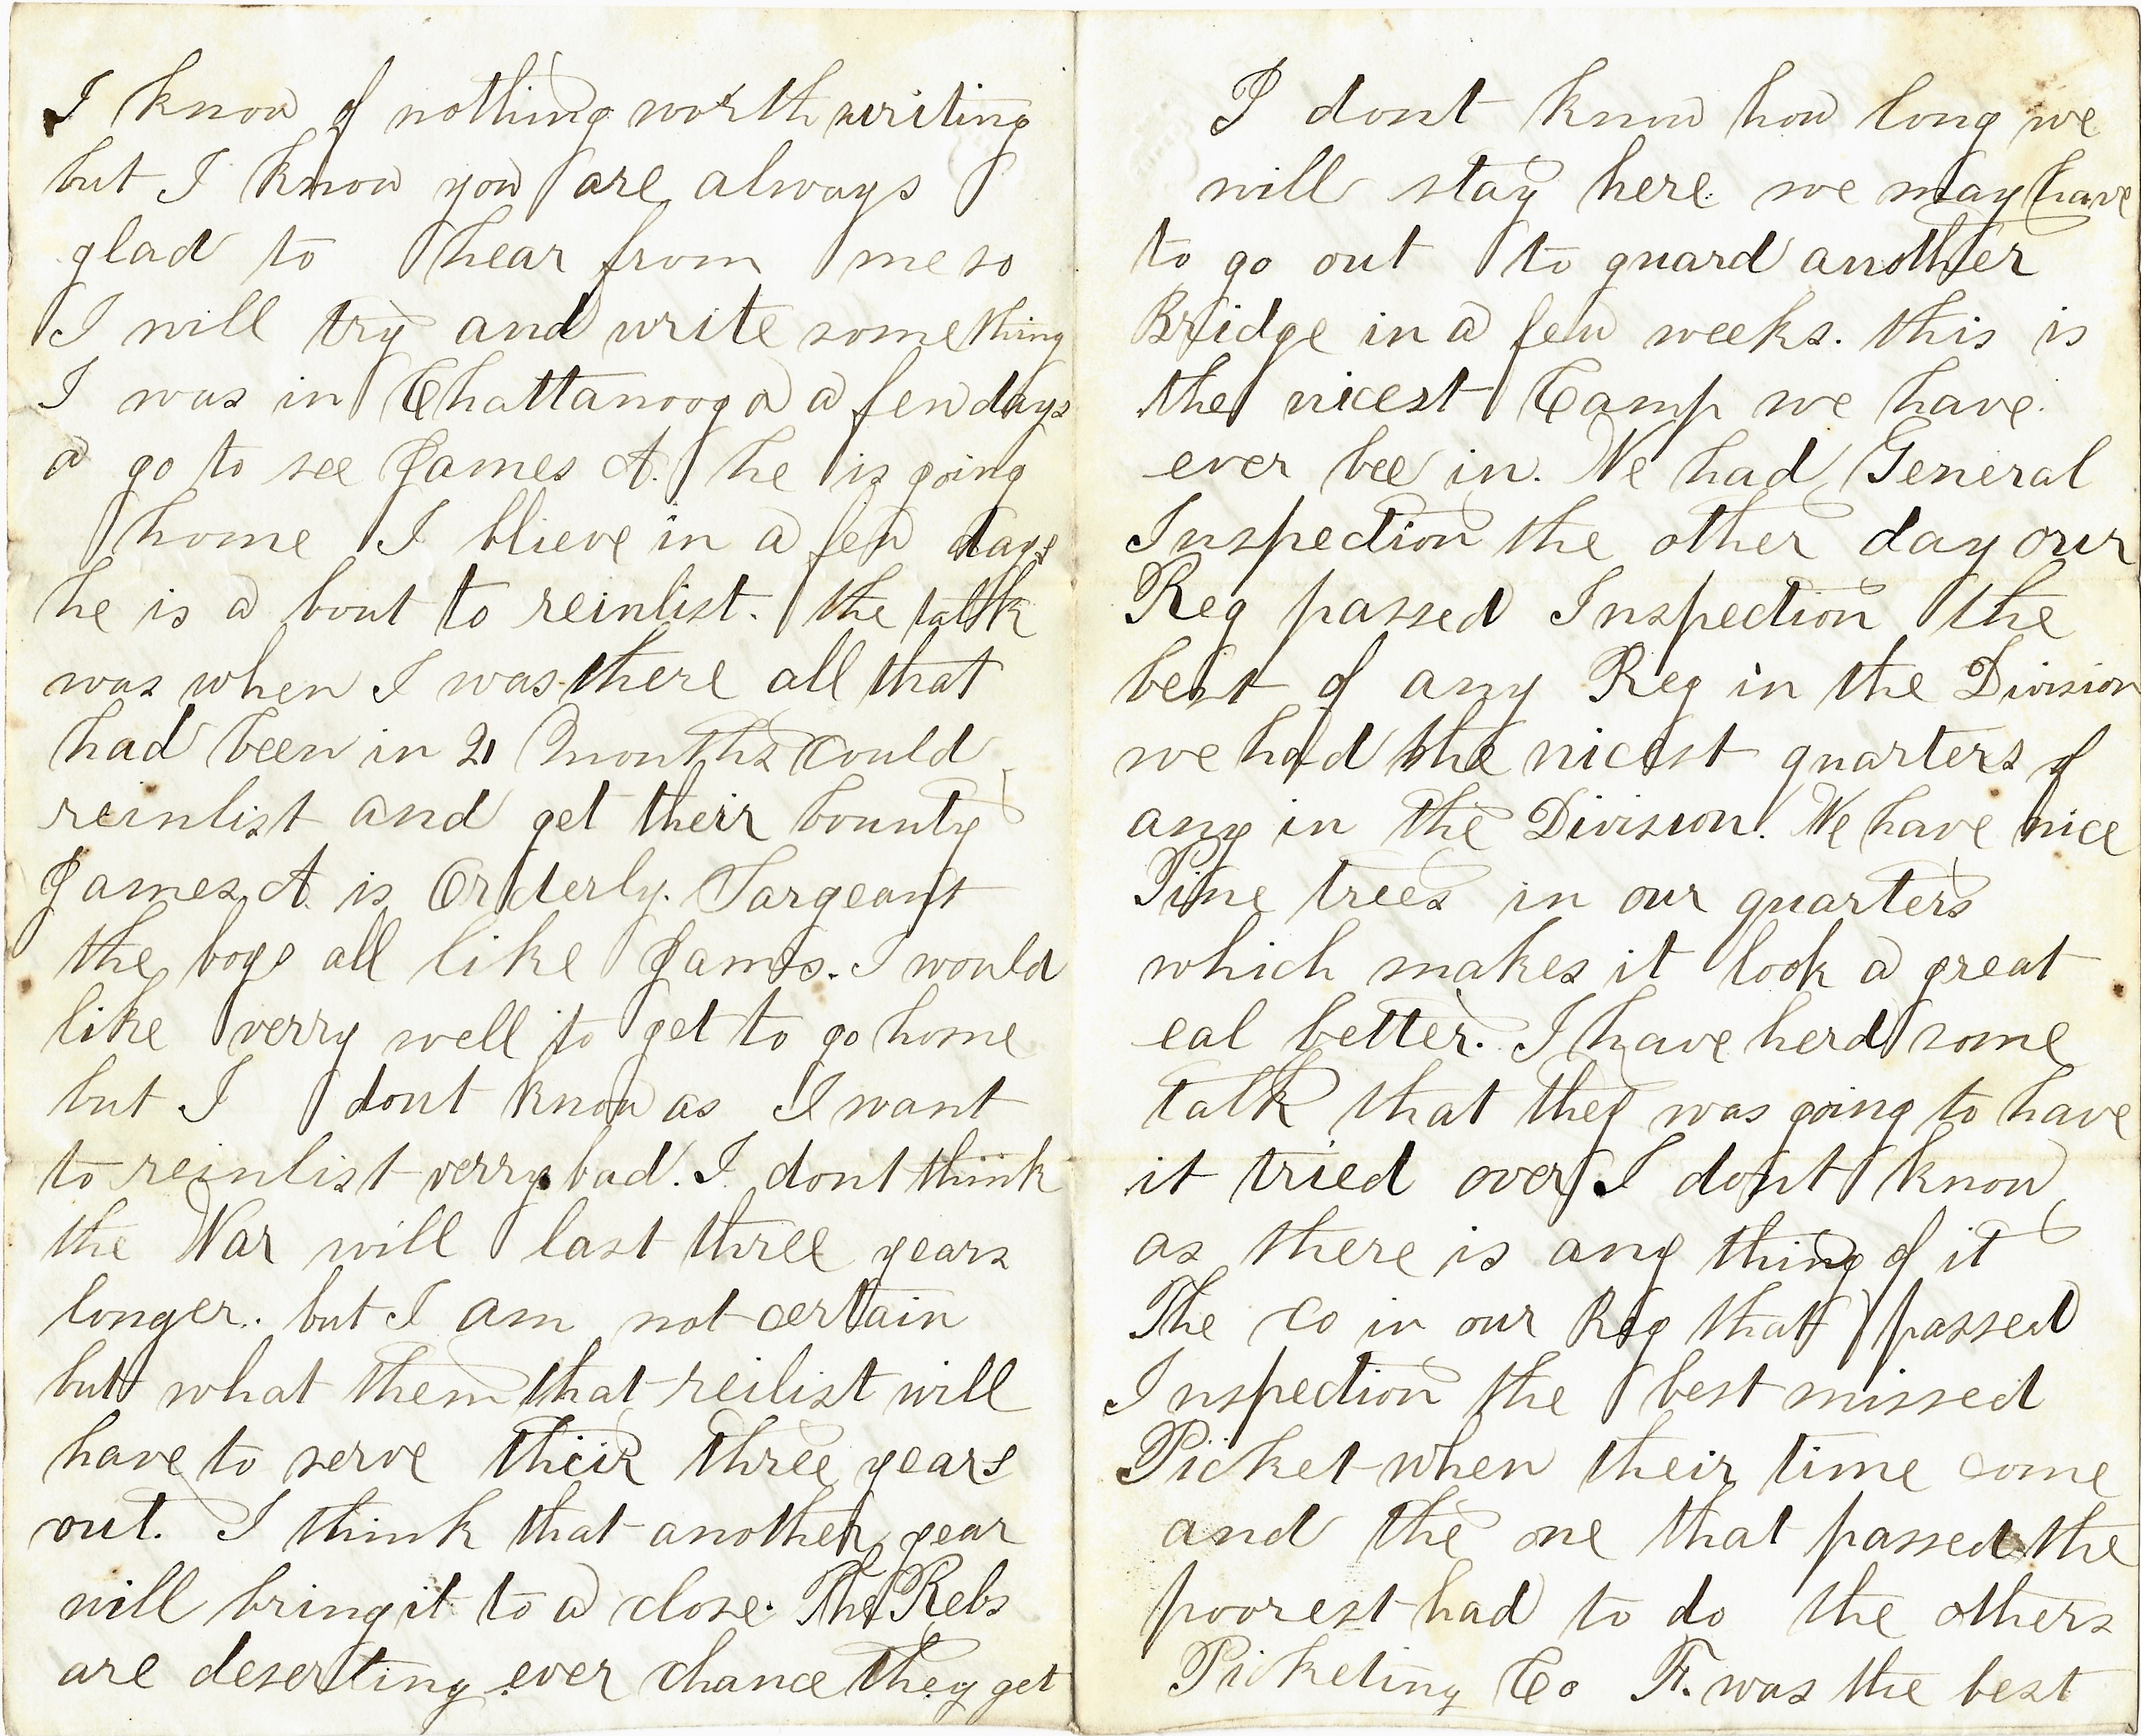 I know of nothing worth writing
but I know you are always
glad to hear from me so
I will try and write something
I was in Chattanooga a few days
a go to see James A. he is going
home I blieve in a few days
he is a bout to reinlist. the talk
was when I was there all that
had been in 21 Months could
reinlist and get their bounty
James A. is Orderly. Sargeant
the boys all like James. I would
like verry well to get to go home
but I dont know as I want
to reinlist verry bad. I dont think
the War will last three years
longer. but I am not certain
but what them that reilist will
have to serve their three years
out. I think that another year
will bring it to a close. The Rebs
are deserting ever chance they get
I dont know how long we
will stay here. we may have
to go out to guard another
Bridge in a few weeks. this is
the nicest Camp we have
ever bee in. We had General
Inspection the other day our
Reg passed Inspection the
best of any Reg in the Division
we had the nicest quarters of
any in the Division. We have nice
Pine trees in our quarters
which makes it look a great
eal better. I have herd some
talk that they was going to have
it tried over I dont know
as there is any thing of it
The Co in our Reg that passed
Inspection the best missed
Picket when their time come
and the one that passed the
poorest had to do the others
Picketing Co F. was the best